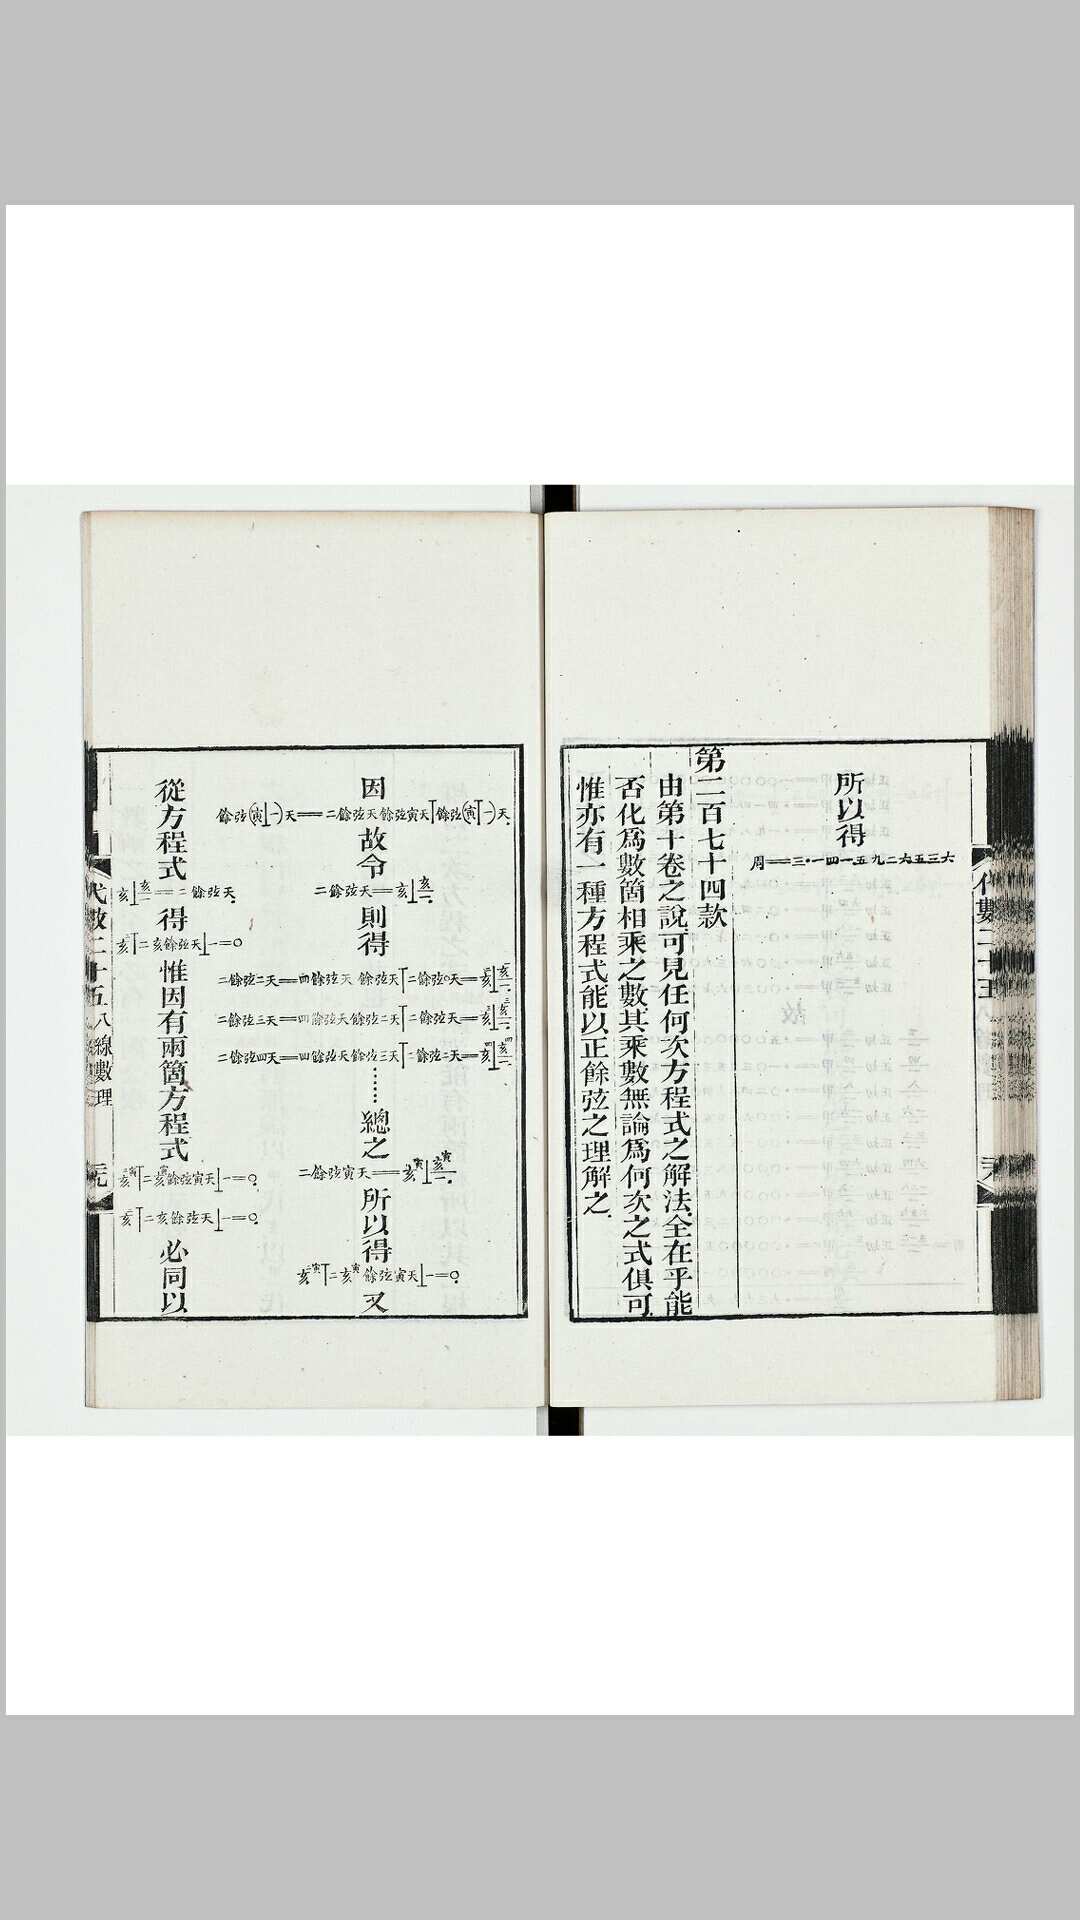 所以得
周==三·一四一五九二六五三六
第二百七十四款
由第十卷之說可見任何次方程式之解法全在乎能
否化爲數箇相乘之數其乘數無論爲何次之式俱可
惟亦有一種方程式能以正餘弦之理解之
代數二十五
因
餘弦(寅⊥一)天==二餘弦天餘弦寅天⊤餘弦(寅⊤一)天
故令
二餘弦天==亥⊥亥一
則得
二餘弦二天==四餘弦天餘弦天⊤二餘弦〇天==亥二⊥亥二一
二餘弦三天==四餘弦天餘弦二天⊤二餘弦天==亥三⊥亥三一
二餘弦四天==四餘弦天餘弦三天⊤二餘弦二天==亥四⊥亥四一
……
總之
二餘弦寅天==亥寅⊥亥寅一
所以得
亥二寅⊤二亥寅餘弦寅天⊥一=〇
又
從方程式
亥⊥亥一==二餘弦天
得
亥二⊤二亥餘弦天⊥一=〇
惟因有兩箇方程式
亥二寅⊤二亥寅餘弦寅天⊥一=〇
亥二⊤二亥餘弦天⊥一=〇
必同以
代數二十五 八線數理